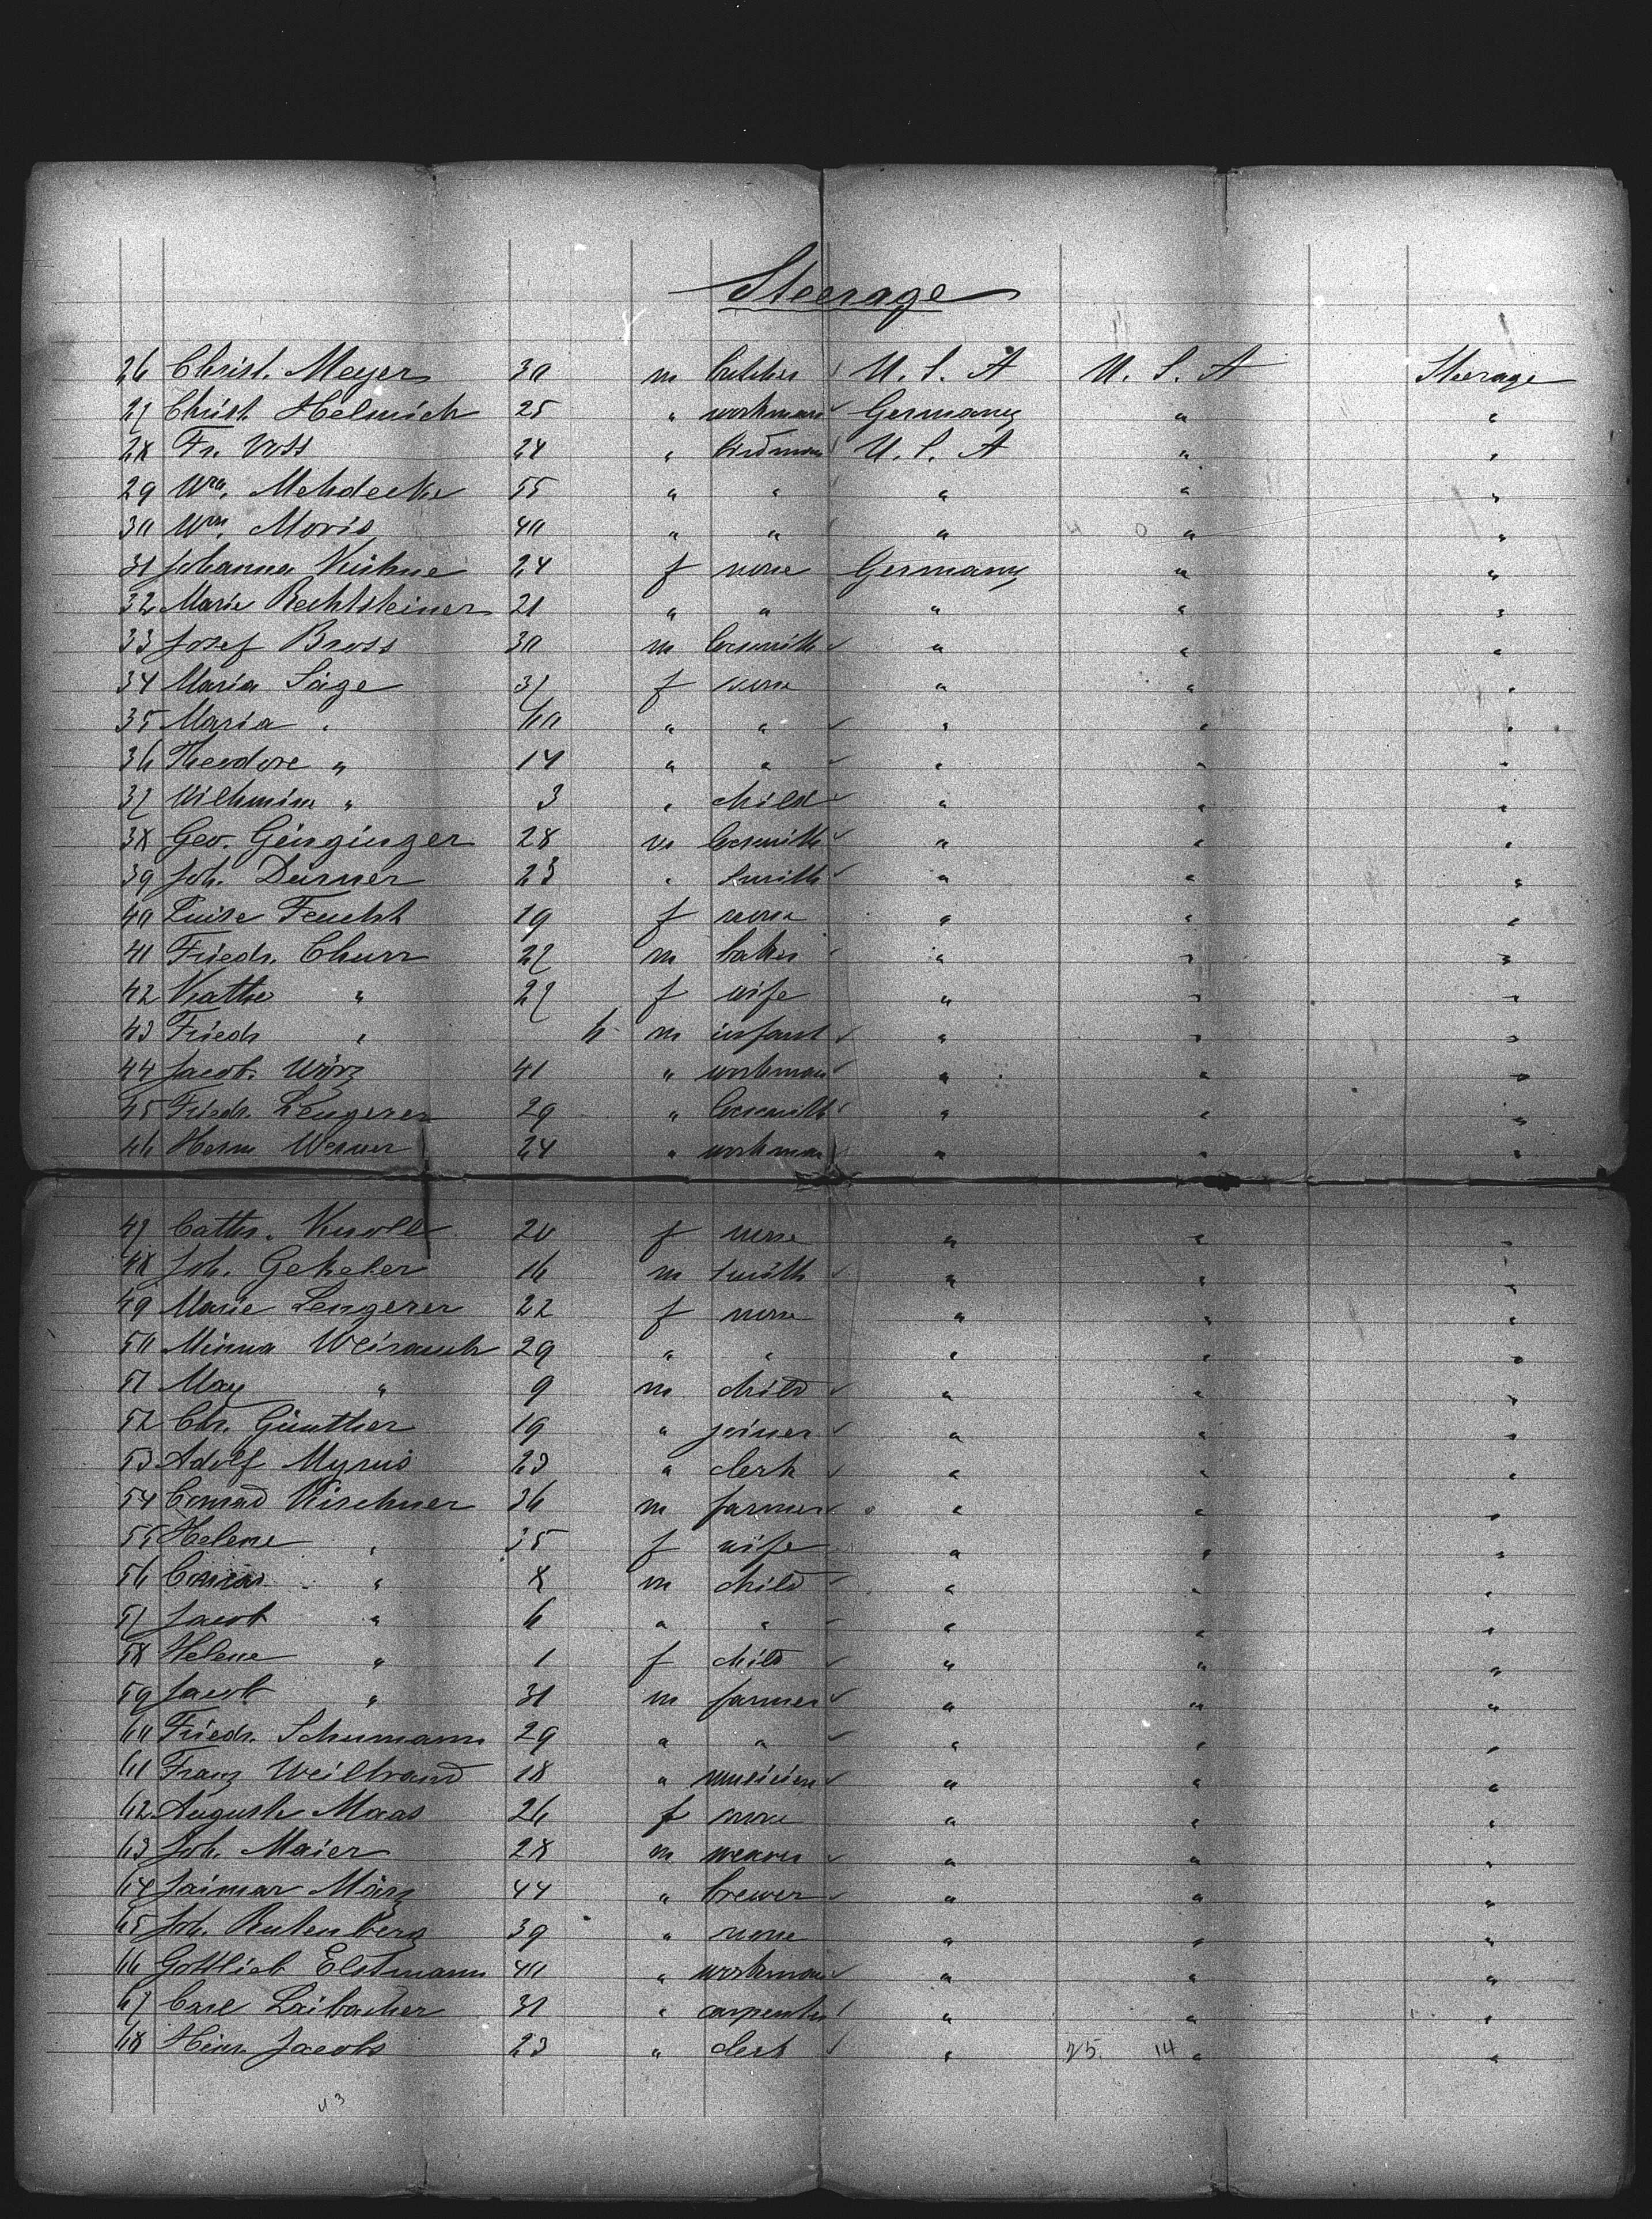 Steerage
26 Christ. Meyer 30 m butcher U. S. A U. S. A Steerage
27 Christ. Helmich 25 " workman Germany " "
28 Fr. Voss 24 " U. S. A " "
29 Wm. Mehdecke 55 " " " " "
30 Wm. Moris 40 " " " " "
31 Johanna Kühne 24 f none Germany " "
32 Marie Rechtsteiner 21 " " " " "
33 Josef Bross 30 m locsmith " " "
34 Maria Säge 37 f none " " "
35 Maria " " " " " "
36 Theodore " 14 " " " " "
37 Wilhmine " 3 " child " " "
38 Geo. Genginger 28 m locsmith " " "
39 Joh. Durner 23 " smith " " "
40 Luise Feucht 19 f none " " "
41 Friedr. Churr 27 m baker " " "
42 Kathe " 27 f wife " " "
43 Friedr " 6 m infant " " "
44 Jacob. Wörz 41 " workman " " "
45 Friedr. Lengerer 29 " locsmith " " "
46 Herm Werner 24 " workman " " "
47 Cathr. Knoll 20 f none " " "
48 Joh. Gekeler 16 m smith " " "
49 Marie Lengerer 22 f none " " "
50 Minna Weirauch 29 " " " " "
51 Max " 9 m child " " "
52 Chr. Günther 19 " joiner " " "
53 Adolf Myrus 23 " clerk " " "
54 Conrad Kirschner 36 m farmer " " "
55 Helene " 35 f wife " " "
56 Conrad " 8 m child " " "
57 Jacob " 6 " " " " "
58 Helene " 1 f child " " "
59 Jacob " 31 m farmer " " "
60 Friedr. Schumann 29 " " " " "
61 Franz Weilbrand 18 " musicien " " "
62 Auguste Maas 26 f none " " "
63 Joh. Maier 28 m weaver " " "
64 März 44 " brewer " " "
65 Joh. Rutenberg 39 " none " " "
66 Gottlieb Elstmann 40 " workman " " "
67 Carl Laibacher 31 " carpenter " " "
68 Heinr. Jacobs 23 " clerk " 25. 14 " "
43